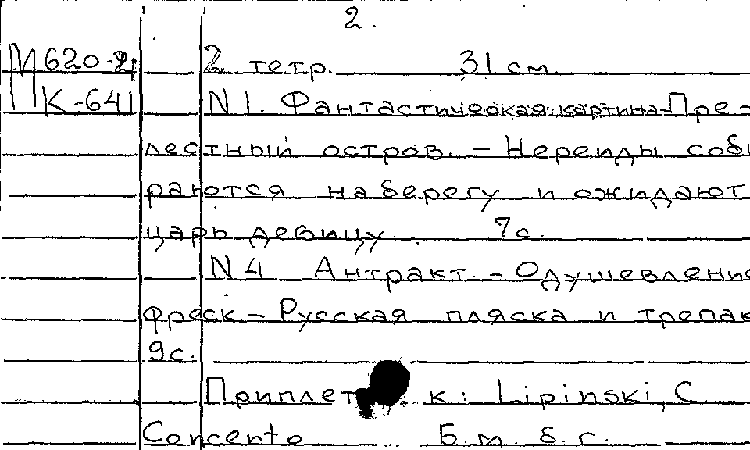 2.
М620-2 2 тетр. 31 см
К-641 N1. Фантастическая картина-Пре-
лестный остров. - Нереиды соби
раются на берегу и ожидают
царь девицу. 7с.
N4 Антракт. - Одушевление
фреск - Русская пляска и трепак
9с.
к: Lipinski, C
Concerto Б.м. б.г.